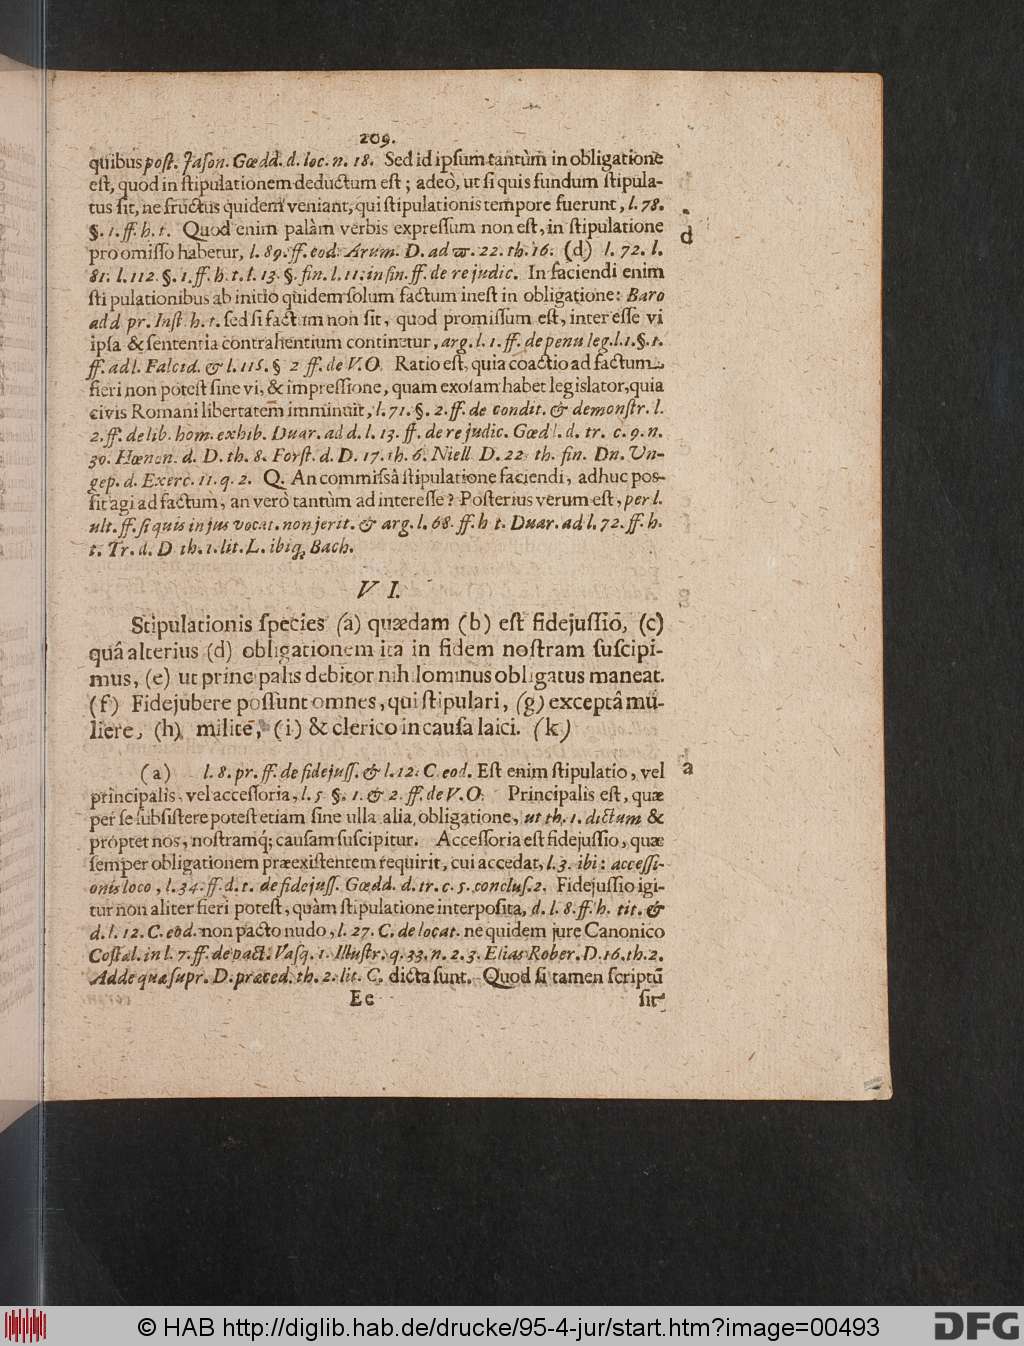 209.
quibus post. Jason. Gœdd. d. loc. n. 18. Sed id ipsum tantùm in obligatione
est, quod in stipulationem deductum est; adeò, ut si quis fundum stipula-
tus sit, ne fructus quidem veniant, qui stipulationis tempore fuerunt, l. 78.
§. 1. ff. h. t. Quod enim palàm verbis expressum non est, in stipulatione
d
pro omisso habetur, l. 89. ff. eod. Arum. D. ad ϖ. 22. th. 16. (d) l. 72. l.
81. l. 112. §. 1. ff. h. t. l. 13. §. fin. l. 11. in fin. ff. de re judic. In faciendi enim
stipulationibus ab initio quidem solum factum inest in obligatione: Baro
ad d pr. Inst. h. t. sed si factum non sit, quod promissum est, interesse vi
ipsa & sententia contrahentium continetur, arg. l. 1. ff. de penu leg. l. 1. §. 1.
ff. ad l. Falcid. & l. 115. § 2 ff. de V. O. Ratio est, quia coactio ad factum
fieri non potest sine vi, & impressione, quam exosam habet legislator, quia
civis Romani libertatem imminuit, l. 71. §. 2. ff. de condit. & demonstr. l.
2. ff. de lib. hom. exhib. Duar. ad d. l. 13. ff. de re judic. Gœdd. d. tr. c. 9. n.
30. Hœnon. d. D. th. 8. Forst. d. D. 17. th. 6. Niell D. 22. th. fin. Dn. Un-
gep. d. Exerc. 11. q. 2. Q. An commissâ stipulatione faciendi, adhuc pos-
sit agi ad factum, an verò tantùm ad interesse? Posterius verum est, per l.
ult. ff. si quis in jus vocat. non jerit. & arg. l. 68. ff. h t. Duar. ad l. 72. ff. h.
t. Tr. d. D th. 1. lit. L. ibiq; Bach.
VI.
Stipulationis species (a) quædam (b) est fidejussio, (c)
quâ alterius (d) obligationem ita in fidem nostram suscipi-
mus, (e) ut principalis debitor nihilominus obligatus maneat.
(f) Fidejubere possunt omnes, qui stipulari, (g) exceptâ mu-
liere, (h) milite, (i) & clerico in causa laici. (k)
a
(a) l. 8. pr. ff. de fidejuss. & l. 12. C. eod. Est enim stipulatio, vel
principalis, vel accessoria, l. 5 §. 1. & 2. ff. de V. O. Principalis est, quæ
per se subsistere potest etiam sine ulla alia obligatione, ut th. 1. dictum &
propter nos, nostramq; causam suscipitur. Accessoria est fidejussio, quæ
semper obligationem præexistentem requirit, cui accedat, l. 3. ibi: accessi-
onis loco, l. 34. ff. d. t. de fidejuss. Gœdd. d. tr. c. 5. conclus. 2. Fidejussio igi-
tur non aliter fieri potest, quàm stipulatione interposita, d. l. 8. ff. h. tit. &
d. l. 12. C. eod. non pacto nudo, l. 27. C. de locat. ne quidem jure Canonico
Costal. in l. 7. ff. de pact. Vasq. 1. Illustr. q. 33. n. 2. 3. Elias Rober. D. 16. th. 2.
Adde quæ supr. D. præced. th. 2. lit. C. dicta sunt. Quod si tamen scriptũ
Ee sit
© HAB http://diglib.hab.de/drucke/95-4-jur/start.htm?image=00493
DFG